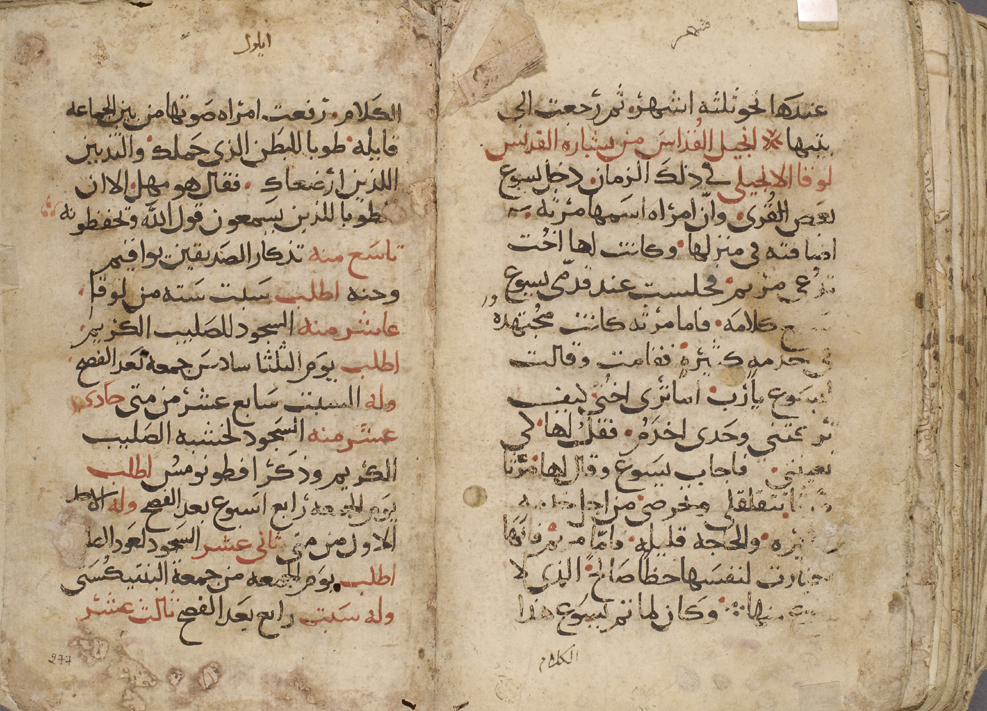 شهر
عندها نحو ثلثه اشهر ثم رجعت الى
بيتها انجيل القداس من بشاره القديس
لوقا الانجيلي في ذلك الزمان دخل يسوع
بعض القرى وان امراه اسمها مرثه
اضافته في منزلها وكانت لها اخت
تدعى مريم فجلست عند قدمي يسوع
كلامه فاما مرثه كانت مجتهده
في خدمه كثيره فقامت وقالت
ليسوع يا رب اما ترى اختي كيف
تركتني وحدي اخدم فقل لها لكي
تعينني فاجاب يسوع وقال لها مرثا
تتقلقلي وتحرصي من اجل خدمه
كثيره والحاجه قليله واما مريم فانها
اختارت لنفسها حظا صالح الذي لا
منها وكان لما تمم يسوع هذا
الكلام
ايلول
الكلام رفعت امراه صوتها من بين الجماعه
قايله طوبا للبطن الذي حملك والثديين
اللذين ارضعاك فقال هو مهل الا ان
طوبا للذين يسمعون قول الله ويحفظونه
تاسع منه تذكار الصديقين يواقيم
وحنه اطلب سبت سته من لوقا
عاشر منه السجود للصليب الكريم
اطلب يوم الثلثا سادس جمعه بعد الفصح
وله السبت سابع عشر من متى حادي
عشر منه السجود لخشبه الصليب
الكريم وذكر افطونومس اطلب
يوم الجمعه رابع اسبوع بعد الفصح وله الاحد
الاول من متى ثاني عشر السجود لعود
اطلب يوم الجمعه من جمعة البنتيكستي
وله سبت رابع بعد الفصح ثالث عشر
277